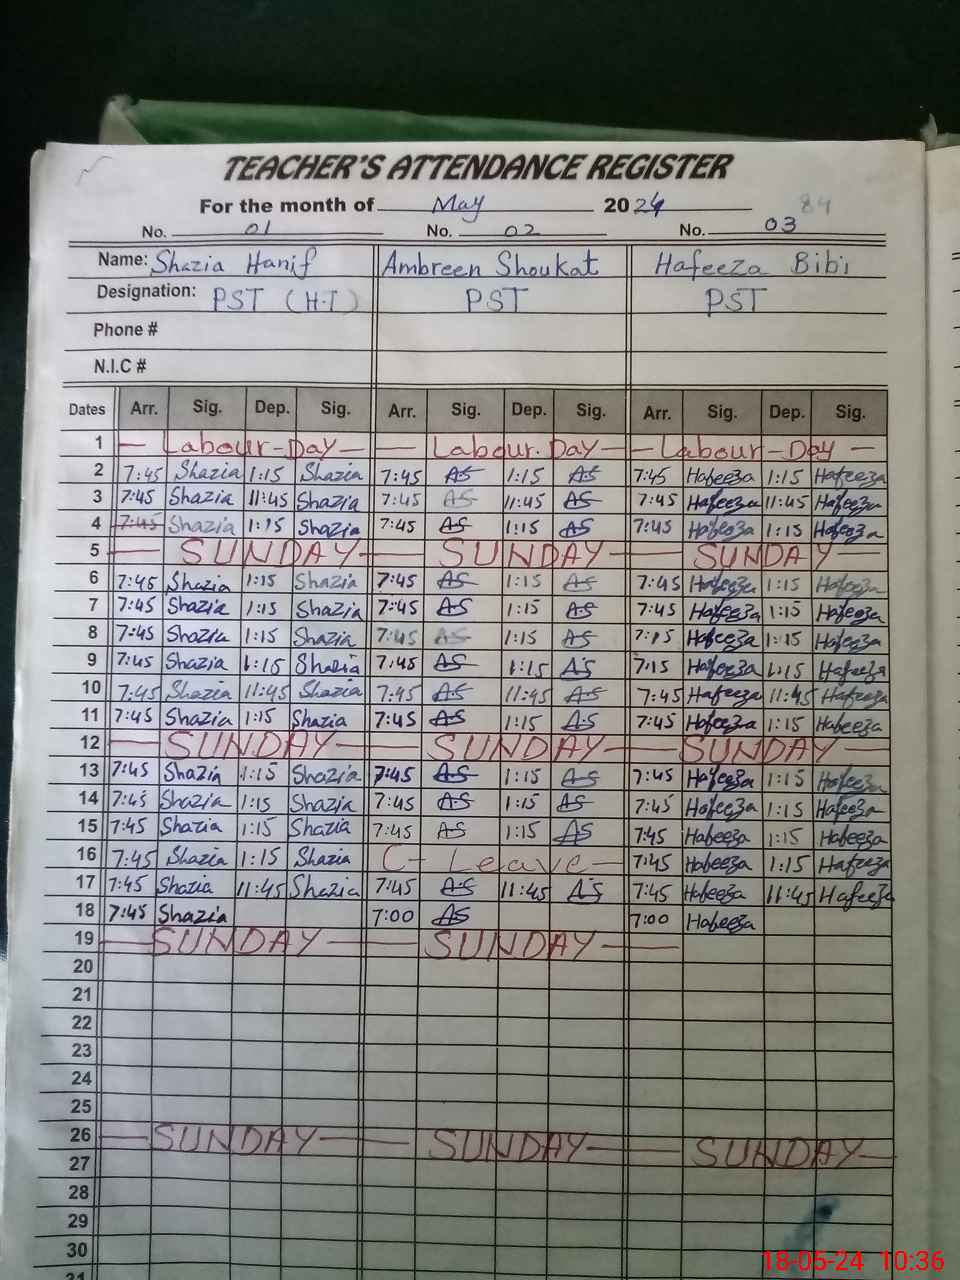 TEACHER'S ATTENDANCE REGISTER
For the month of May 2024 84
No. 01 No. 02 No. 03
Name: Shazia Hanif Ambreen Shoukat Hafeeza Bibi
Designation: PST (H.T) PST PST
Phone #
N.I.C #
Dates Arr. Sig. Dep. Sig. Arr. Sig. Dep. Sig. Arr. Sig. Dep. Sig.
1 Labour-Day Labour.Day Labour-Day
2 7:45 Shazia 1:15 Shazia 7:45 AS 1:15 AS 7:45 Hafeeza 1:15 Hafeeza
3 7:45 Shazia 11:45 Shazia 7:45 AS 11:45 AS 7:45 Hafeeza 11:45 Hafeeza
4 7:45 Shazia 1:15 Shazia 7:45 AS 1:15 AS 7:45 Hafeeza 1:15 Hafeeza
5 SUNDAY SUNDAY SUNDAY
6 7:45 Shazia 1:15 Shazia 7:45 AS 1:15 AS 7:45 Hafeeza 1:15 Hafeeza
7 7:45 Shazia 1:15 Shazia 7:45 AS 1:15 AS 7:45 Hafeeza 1:15 Hafeeza
8 7:45 Shazia 1:15 Shazia 7:45 AS 1:15 AS 7:15 Hafeeza 1:15 Hafeeza
9 7:45 Shazia 1:15 Shazia 7:45 AS 1:15 AS 7:15 Hafeeza 1:15 Hafeeza
10 7:45 Shazia 11:45 Shazia 7:45 AS 11:45 AS 7:45 Hafeeza 11:45 Hafeeza
11 7:45 Shazia 1:15 Shazia 7:45 AS 1:15 AS 7:45 Hafeeza 1:15 Hafeeza
12 SUNDAY SUNDAY SUNDAY
13 7:45 Shazia 1:15 Shazia 7:45 AS 1:15 AS 7:45 Hafeeza 1:15 Hafeeza
14 7:45 Shazia 1:15 Shazia 7:45 AS 1:15 AS 7:45 Hafeeza 1:15 Hafeeza
15 7:45 Shazia 1:15 Shazia 7:45 AS 1:15 AS 7:45 Hafeeza 1:15 Hafeeza
16 7:45 Shazia 1:15 Shazia C- Leave 7:45 Hafeeza 1:15 Hafeeza
17 7:45 Shazia 11:45 Shazia 7:45 AS 11:45 AS 7:45 Hafeeza 11:45 Hafeeza
18 7:45 Shazia 7:00 AS 7:00 Hafeeza
19 SUNDAY SUNDAY
20
21
22
23
24
25
26 SUNDAY SUNDAY SUNDAY
27
28
29
30
31
18-05-24 10:36